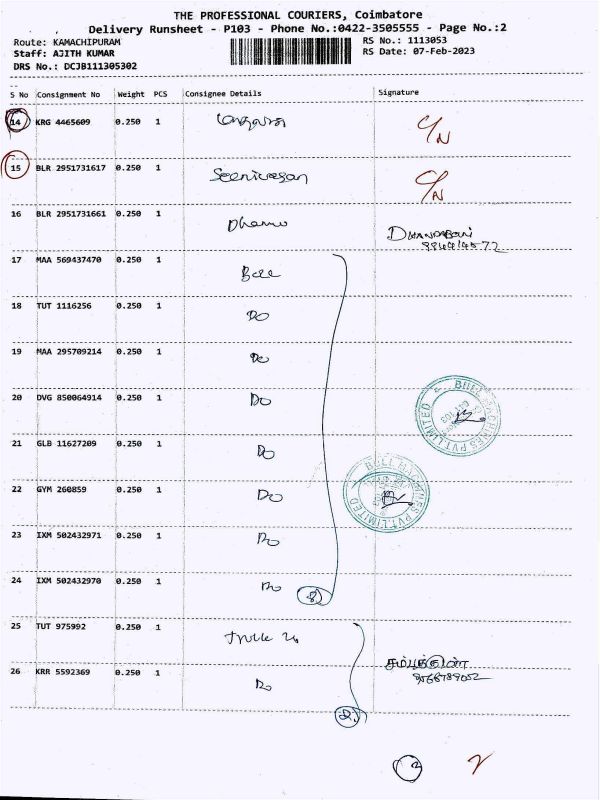 THE PROFESSIONAL COURIERS, Coimbatore
Delivery Runsheet - P103 - Phone No.:0422-3505555 - Page No.:2
Route: KAMACHIPURAM RS No.: 1113053
Staff: AJITH KUMAR RS Date: 07-Feb-2023
DRS No.: DCJB111305302
S No Consignment No Weight PCS Consignee Details Signature
14 KRG 4465609 0.250 1 C/N
15 BLR 2951731617 0.250 1 Seenivasan C/N
16 BLR 2951731661 0.250 1 Dhanu DHANDABANI
17 MAA 569437470 0.250 1 Bull
18 TUT 1116256 0.250 1 Do
19 MAA 295709214 0.250 1 Do
20 DVG 850064914 0.250 1 Do
21 GLB 11627209 0.250 1 Do
22 GYM 260859 0.250 1 Do
23 IXM 502432971 0.250 1 Do
24 IXM 502432970 0.250 1 Do 8
BULL MACHINES PVT.LIMITED
BULL MACHINES PVT.LIMITED
25 TUT 975992 0.250 1
26 KRR 5592369 0.250 1 Do
2